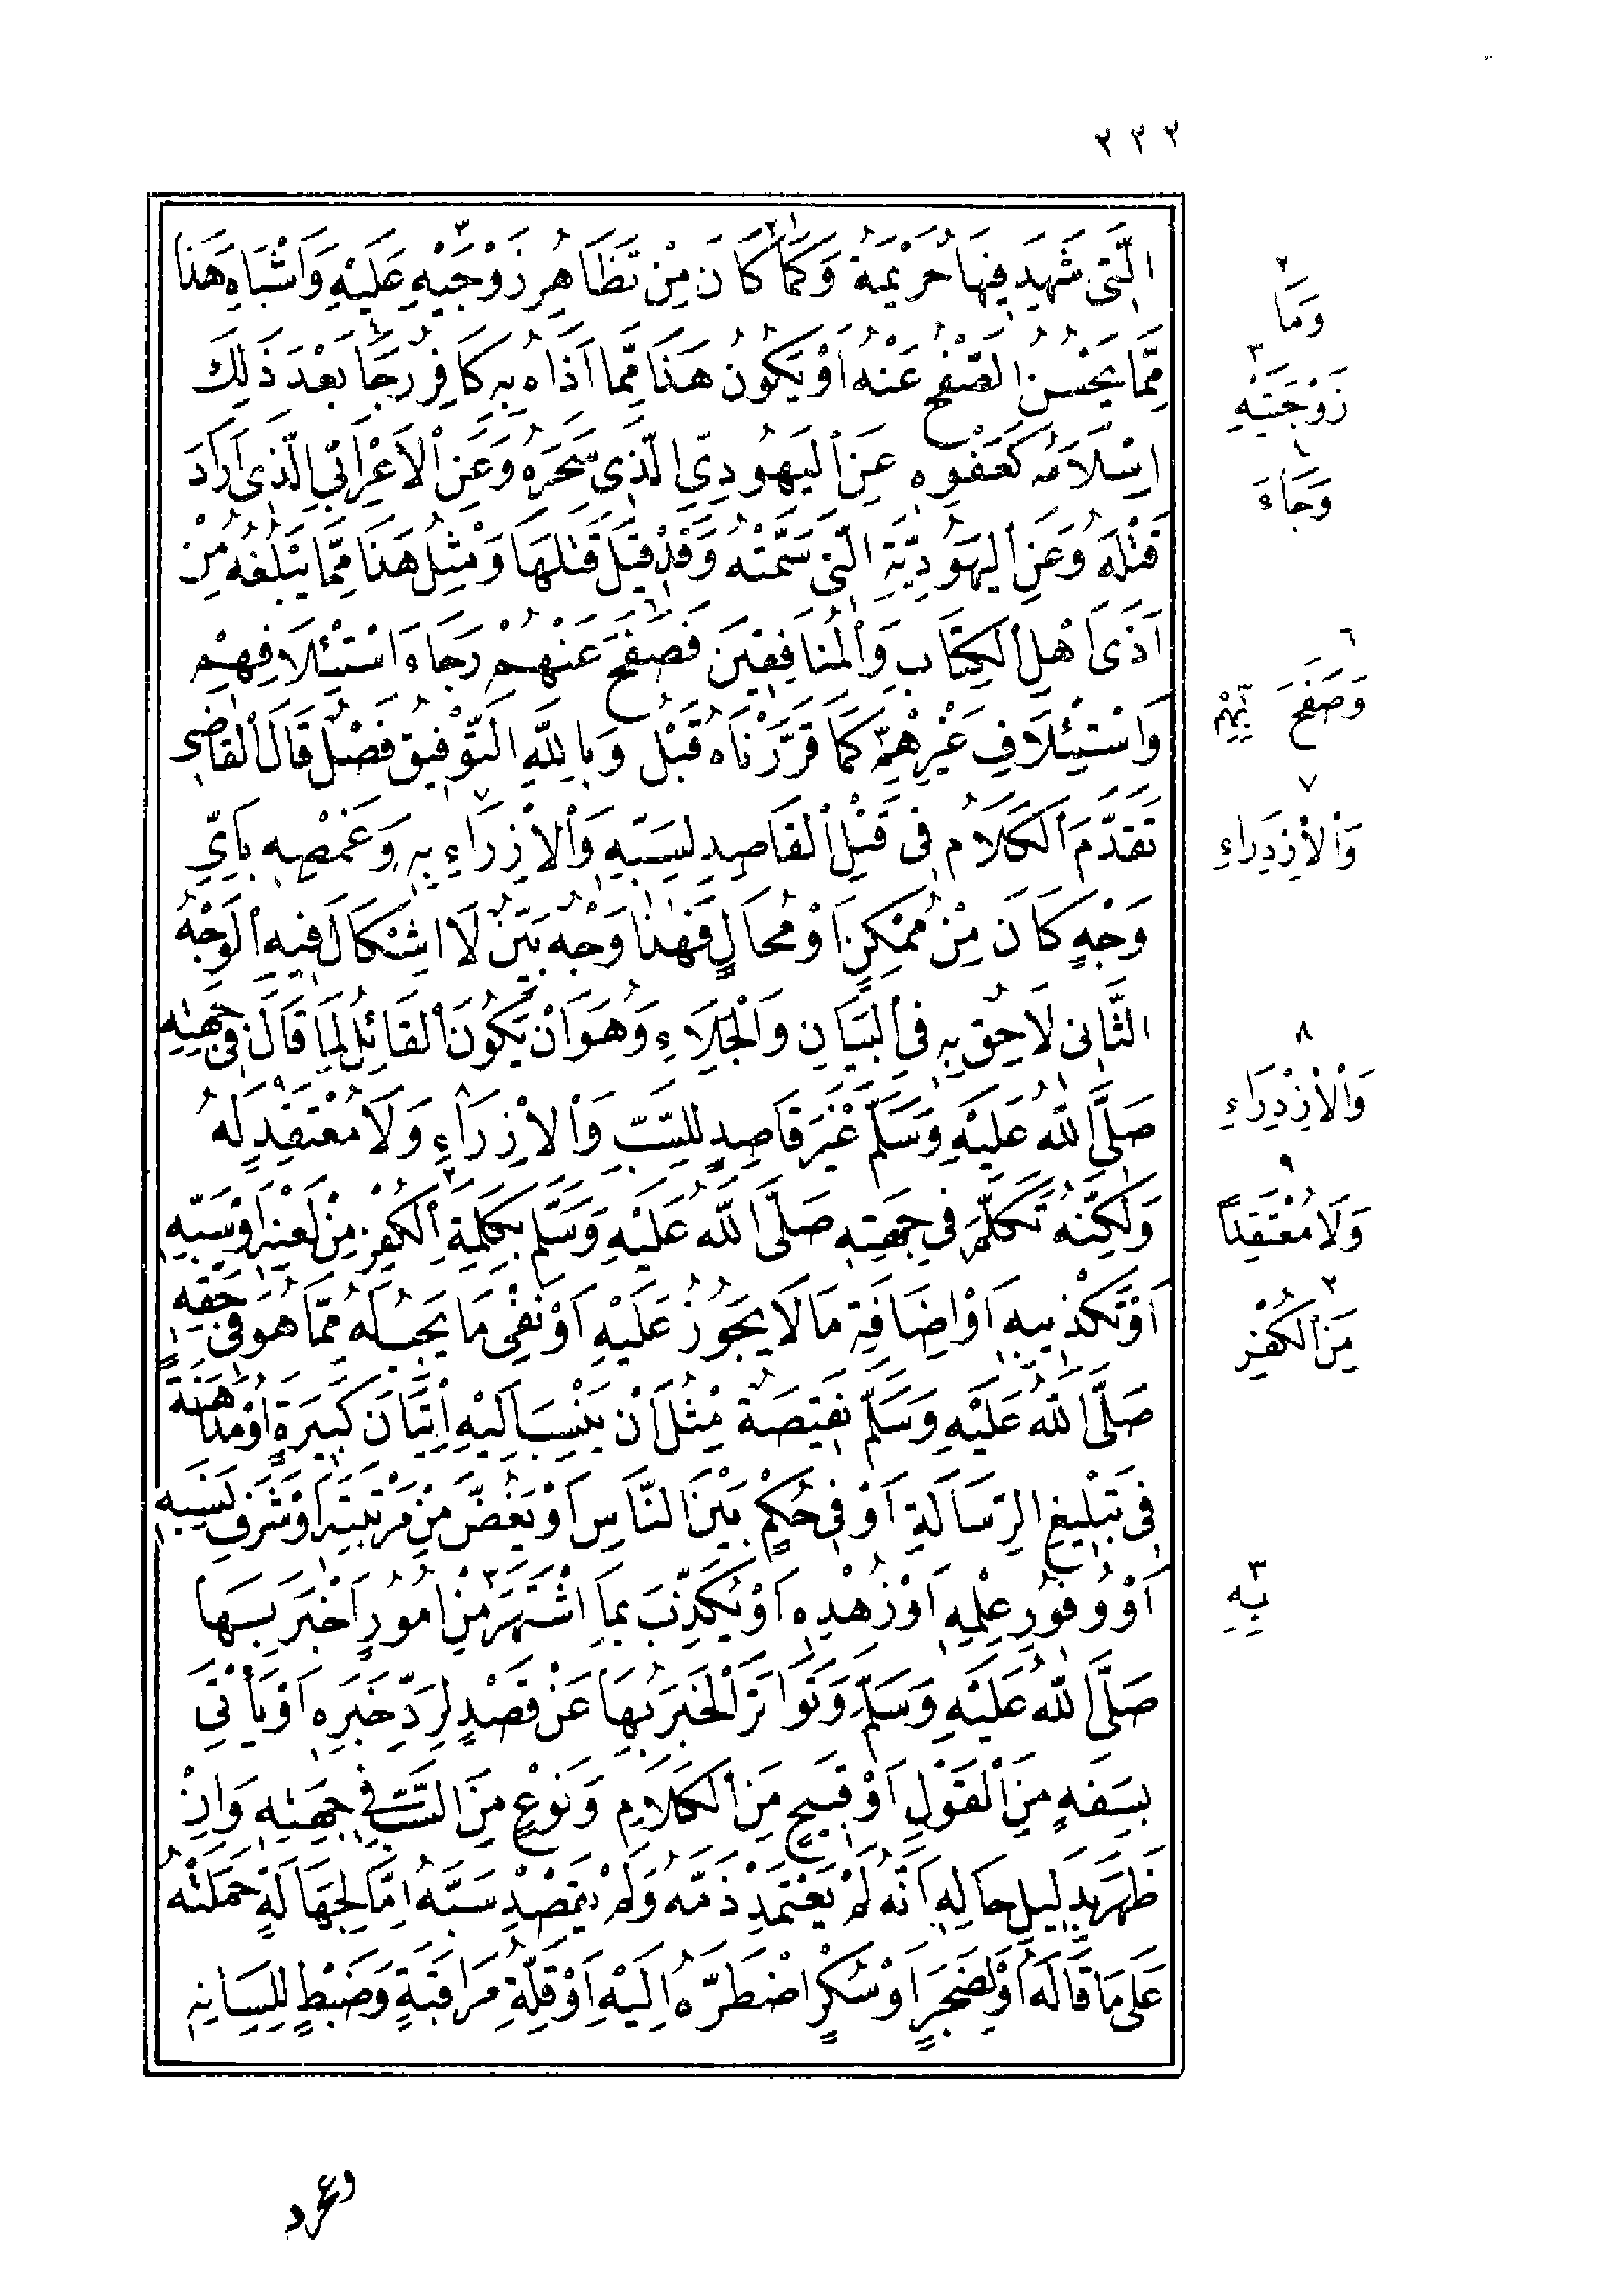 ٢٣٢
الَّتِى شَهِدَ فِيهَا خُزَيْمَةُ وَكَمَا كَانَ مِنْ تَظَاهُرِ زَوْجَيْهِ عَلَيْهِ وَاَشْبَاهِ هَذَا
مِمَّا يَحْسُنُ الصَّفْحُ عَنْهُ اَوْ يَكُونُ هَذَا مِمَّا اَذَاهُ بِهِ كَافِرٌ رَجَا بَعْدَ ذَلِكَ
اِسْلَامَهُ كَعَفْوِهِ عَنِ الْيَهُودِيِّ الَّذِى سَحَرَهُ وَعَنِ الْاَعْرَابِيِّ الَّذِى اَرَادَ
قَتْلَهُ وَعَنِ الْيَهُودِيَّةِ الَّتِى سَمَّتْهُ وَقَدْ قِيلَ قَتَلَهَا وَمِثْلُ هَذَا مِمَّا يَبْلُغُهُ مِنْ
اَذَى اَهْلِ الْكِتَابِ وَالْمُنَافِقِينَ فَصَفَحَ عَنْهُمْ رَجَاءَ اسْتِئْلَافِهِمْ
وَاسْتِئْلَافِ غَيْرِهِمْ كَمَا قَرَّرْنَاهُ قَبْلُ وَبِاللّٰهِ التَّوْفِيقُ فَصْلٌ قَالَ الْقَاضِى
تَقَدَّمَ الْكَلَامُ فِى قَتْلِ الْقَاصِدِ لِسَبِّهِ وَالْاِزْرَاءِ بِهِ وَغَمْصِهِ بِاَيِّ
وَجْهٍ كَانَ مِنْ مُمْكِنٍ اَوْ مُحَالٍ فَهَذَا وَجْهٌ بَيِّنٌ لَا اِشْكَالَ فِيهِ الْوَجْهُ
الثَّانِى لَاحِقٌ بِهِ فِى الْبَيَانِ وَالْجَلَاءِ وَهُوَ اَنْ يَكُونَ الْقَائِلُ لِمَا قَالَ فِى جِهَتِهِ
صَلَّى اللّٰهُ عَلَيْهِ وَسَلَّمَ غَيْرَ قَاصِدٍ لِلسَّبِّ وَالْاِزْرَاءِ وَلَا مُعْتَقِدٍ لَهُ
وَلَكِنَّهُ تَكَلَّمَ فِى جِهَتِهِ صَلَّى اللّٰهُ عَلَيْهِ وَسَلَّمَ بِكَلِمَةِ الْكُفْرِ مِنْ لَعْنِهِ اَوْ سَبِّهِ
اَوْ تَكْذِيبِهِ اَوْ اِضَافَةِ مَا لَا يَجُوزُ عَلَيْهِ اَوْ نَفْىِ مَا يَجِبُ لَهُ مِمَّا هُوَ فِى حَقِّهِ
صَلَّى اللّٰهُ عَلَيْهِ وَسَلَّمَ نَقِيصَةٌ مِثْلُ اَنْ يَنْسِبَ اِلَيْهِ اِتْيَانَ كَبِيرَةٍ اَوْ مُدَاهَنَةً
فِى تَبْلِيغِ الرِّسَالَةِ اَوْ فِى حُكْمٍ بَيْنَ النَّاسِ اَوْ يَغُضَّ مِنْ مَرْتَبَتِهِ اَوْ شَرَفِ نَسَبِهِ
اَوْ وُفُورِ عِلْمِهِ اَوْ زُهْدِهِ اَوْ يُكَذِّبَ بِمَا اشْتَهَرَ مِنْ اُمُورٍ اَخْبَرَ بِهَا
صَلَّى اللّٰهُ عَلَيْهِ وَسَلَّمَ وَتَوَاتَرَ الْخَبَرُ بِهَا عَنْ قَصْدٍ لِرَدِّ خَبَرِهِ اَوْ يَأْتِىَ
بِسَفَهٍ مِنَ الْقَوْلِ اَوْ قَبِيحٍ مِنَ الْكَلَامِ وَنَوْعٍ مِنَ السَّبِّ فِى جِهَتِهِ وَاِنْ
ظَهَرَ بِدَلِيلِ حَالِهِ اَنَّهُ لَمْ يَعْتَمِدْ ذَمَّهُ وَلَمْ يَقْصِدْ سَبَّهُ اِمَّا لِجَهَالَةٍ حَمَلَتْهُ
عَلَى مَا قَالَهُ اَوْ لِضَجَرٍ اَوْ سُكْرٍ اضْطَرَّهُ اِلَيْهِ اَوْ قِلَّةِ مُرَاقَبَةٍ وَضَبْطٍ لِلِسَانِهِ
٢
وَمَا
٣
زَوْجَتَيْهِ
٤
وَجَاءَ
٦
وَصَفَحَ
٧
وَالْاِزْدِرَاءِ
٨
وَالْاِزْدِرَاءِ
٩
وَلَا مُعْتَقِدًا
٢
مِنَ الْكُفْرِ
٣
بِهِ